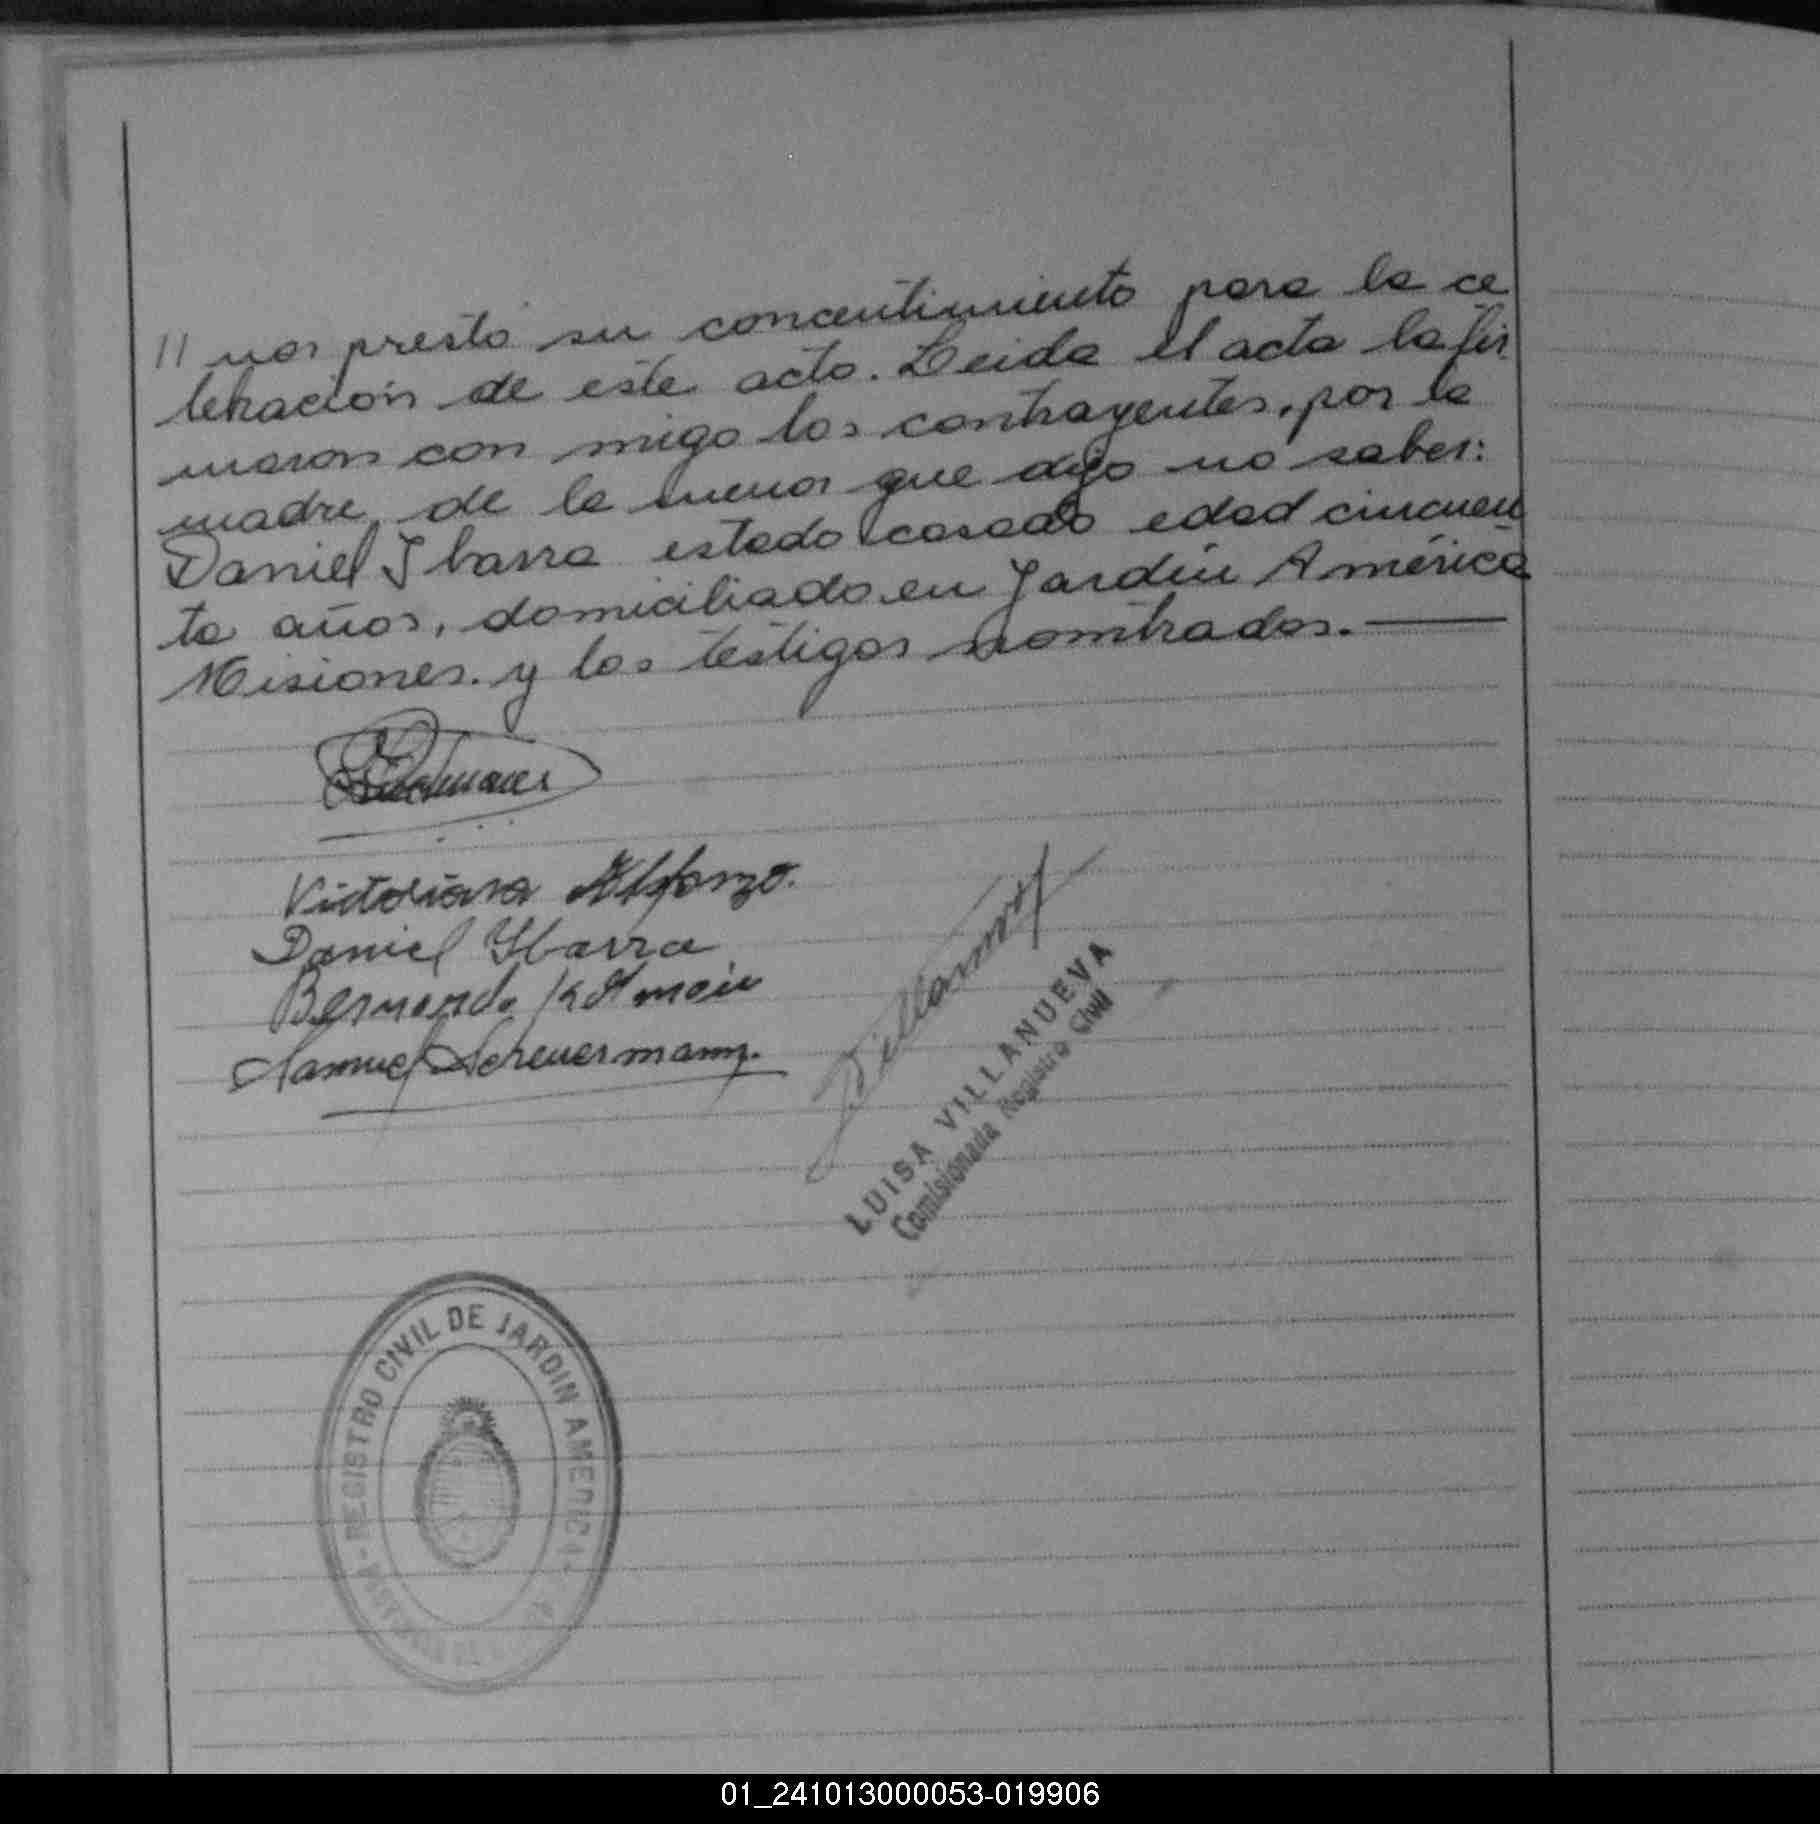 // nor presto su concentimiento para la ce
lebracion de este acto. Leida el acta la fir
maron con migo los contrayentes, por la
madre de la menor que dijo no saber:
Daniel Ibarra estado casado edad cincuen
ta años, domiciliado en Jardín América
Misiones. y los testigos nombrados.
Victoriana Alfonzo.
Daniel Ybarra
Bernardo
Samuel Scheuermann.
LUISA VILLANUEVA
Comisionada Registro Civil
REGISTRO CIVIL DE JARDIN AMERICA
01_241013000053-019906